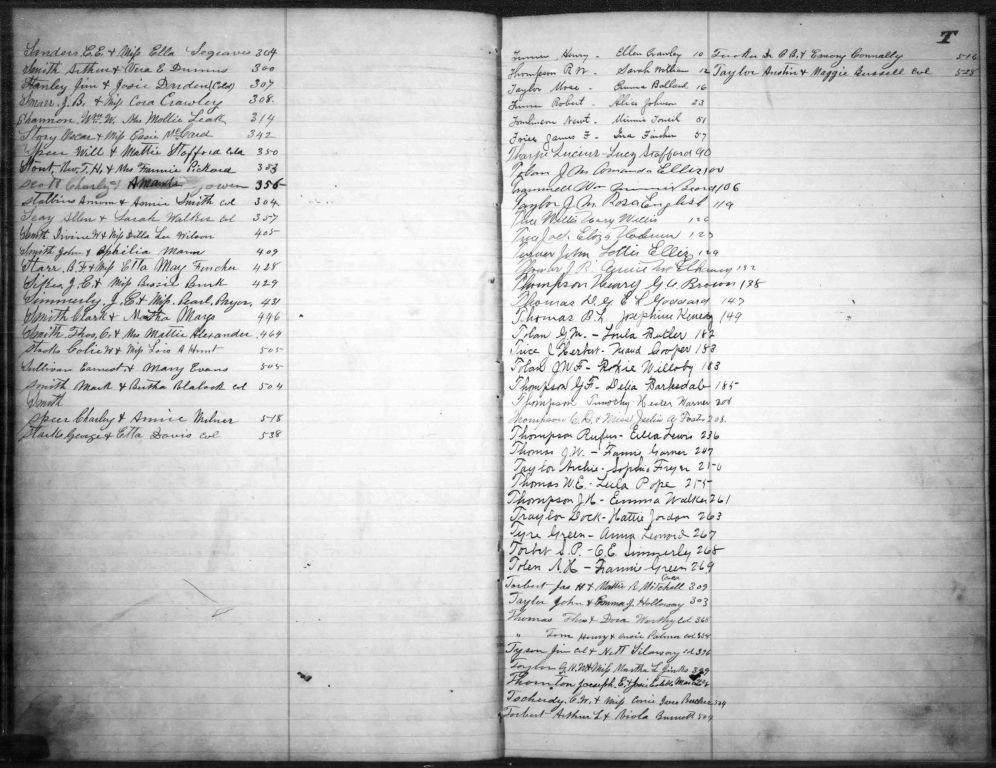 Sanders C.E. & Miss Ella Segraves 304
Smith Arthur & Vera E 300
Stanley Jim & Josie Darden (Cold) 307
J.B. & Miss Cora Crawley 308
Shannon Wm W. Mrs Mollie Leak 314
Story Oscar & Miss Essie McCord 342
Speer Will & Mattie Stafford Col 350
Stont, Rev. T.H. & Mrs Fannie Pickard 353
Scott Charley & Amanda Gowen 356
Stallins & Annie Smith col 304
Allen & Sarah Walker col 357
Smith Irvine W & Miss Della Lee Wilson 405
Smith John & Ophilia Mann 409
Starr B.F. & Miss Etta May Fincher 428
J.C. & Miss Bessie Bunk 429
Simmerly, J.C. & Miss Pearl Pryor 431
Smith Clark & Mays 446
Smith Thos. C. & Mrs Mattie Alexander 464
Starks Colie W & Miss Lois A Hunt 505
Sullivan Earnest & Mary Evans 505
Smith Mark & Bertha Blalock col 504
Smith
Speer Charley & Annie Milner 518
Starks George & Etta Davis col 538
T
Turner, Henry - Ellen Crawley 10
Thompson R.W. - Sarah 12
Taylor Mose - Emma Bolland 16
Turner Robert - Alice Johnson 23
Tomlinson Newt - Minnie 51
Trice James F - Ira Fincher 57
Tharpe Lucius - Lucy Stafford 90
Tolan J.M. Amanda Ellis 100
Trammell Wm 106
Taylor J.M. Rosa English 119
Trice Mollie Willis 126
Trice Jack Eliza 127
Turner John Lottie Ellis 129
132
Thompson Henry G.A. Brown 138
Thomas D.G. E.L. Goddard 147
Thomas B.L. Josephine 149
Tolan G.M. - Loula Butler 182
Trice Herbert - Maud Cooper 183
Tolan J.W.F. - Rokie Willoby 183
Thompson G.F. - Delia Barksdale 185
Thompson Timothy - Hester Warner 204
Thompson C.R. & Miss 208
Thompson Rufus - Lula Lewis 236
Thomas J.W. - Fannie Garner 247
Taylor Archie - Sophie Fryer 250
Thomas W.E. - Lula Pope 255
Thompson J.H. - Emma Walker 261
Traylor Dock - Hattie Jordan 263
Tyre Green - Anna Leonard 267
Torbet S.P. - C.E. Simmerly 268
Tolen A.H. - Fannie Green 269
Torbert Jas H & Mattie R Mitchell 309
Taylor John & Emma J. Holloway 303
Thomas Thos & Dora Worthy Col 365
" Tom Henry & Susie Palmer col 354
Tyson Jim col & Nett 376
Taylor G.H.W. & Miss Martha L Jinks 399
Thornton Joeseph E. &
C.W. & Miss Carrie Butler
Torbert Arthur L & Viola 509
Dr P.B. & Emory Connally 516
Taylor Austin & Maggie Russell col 528